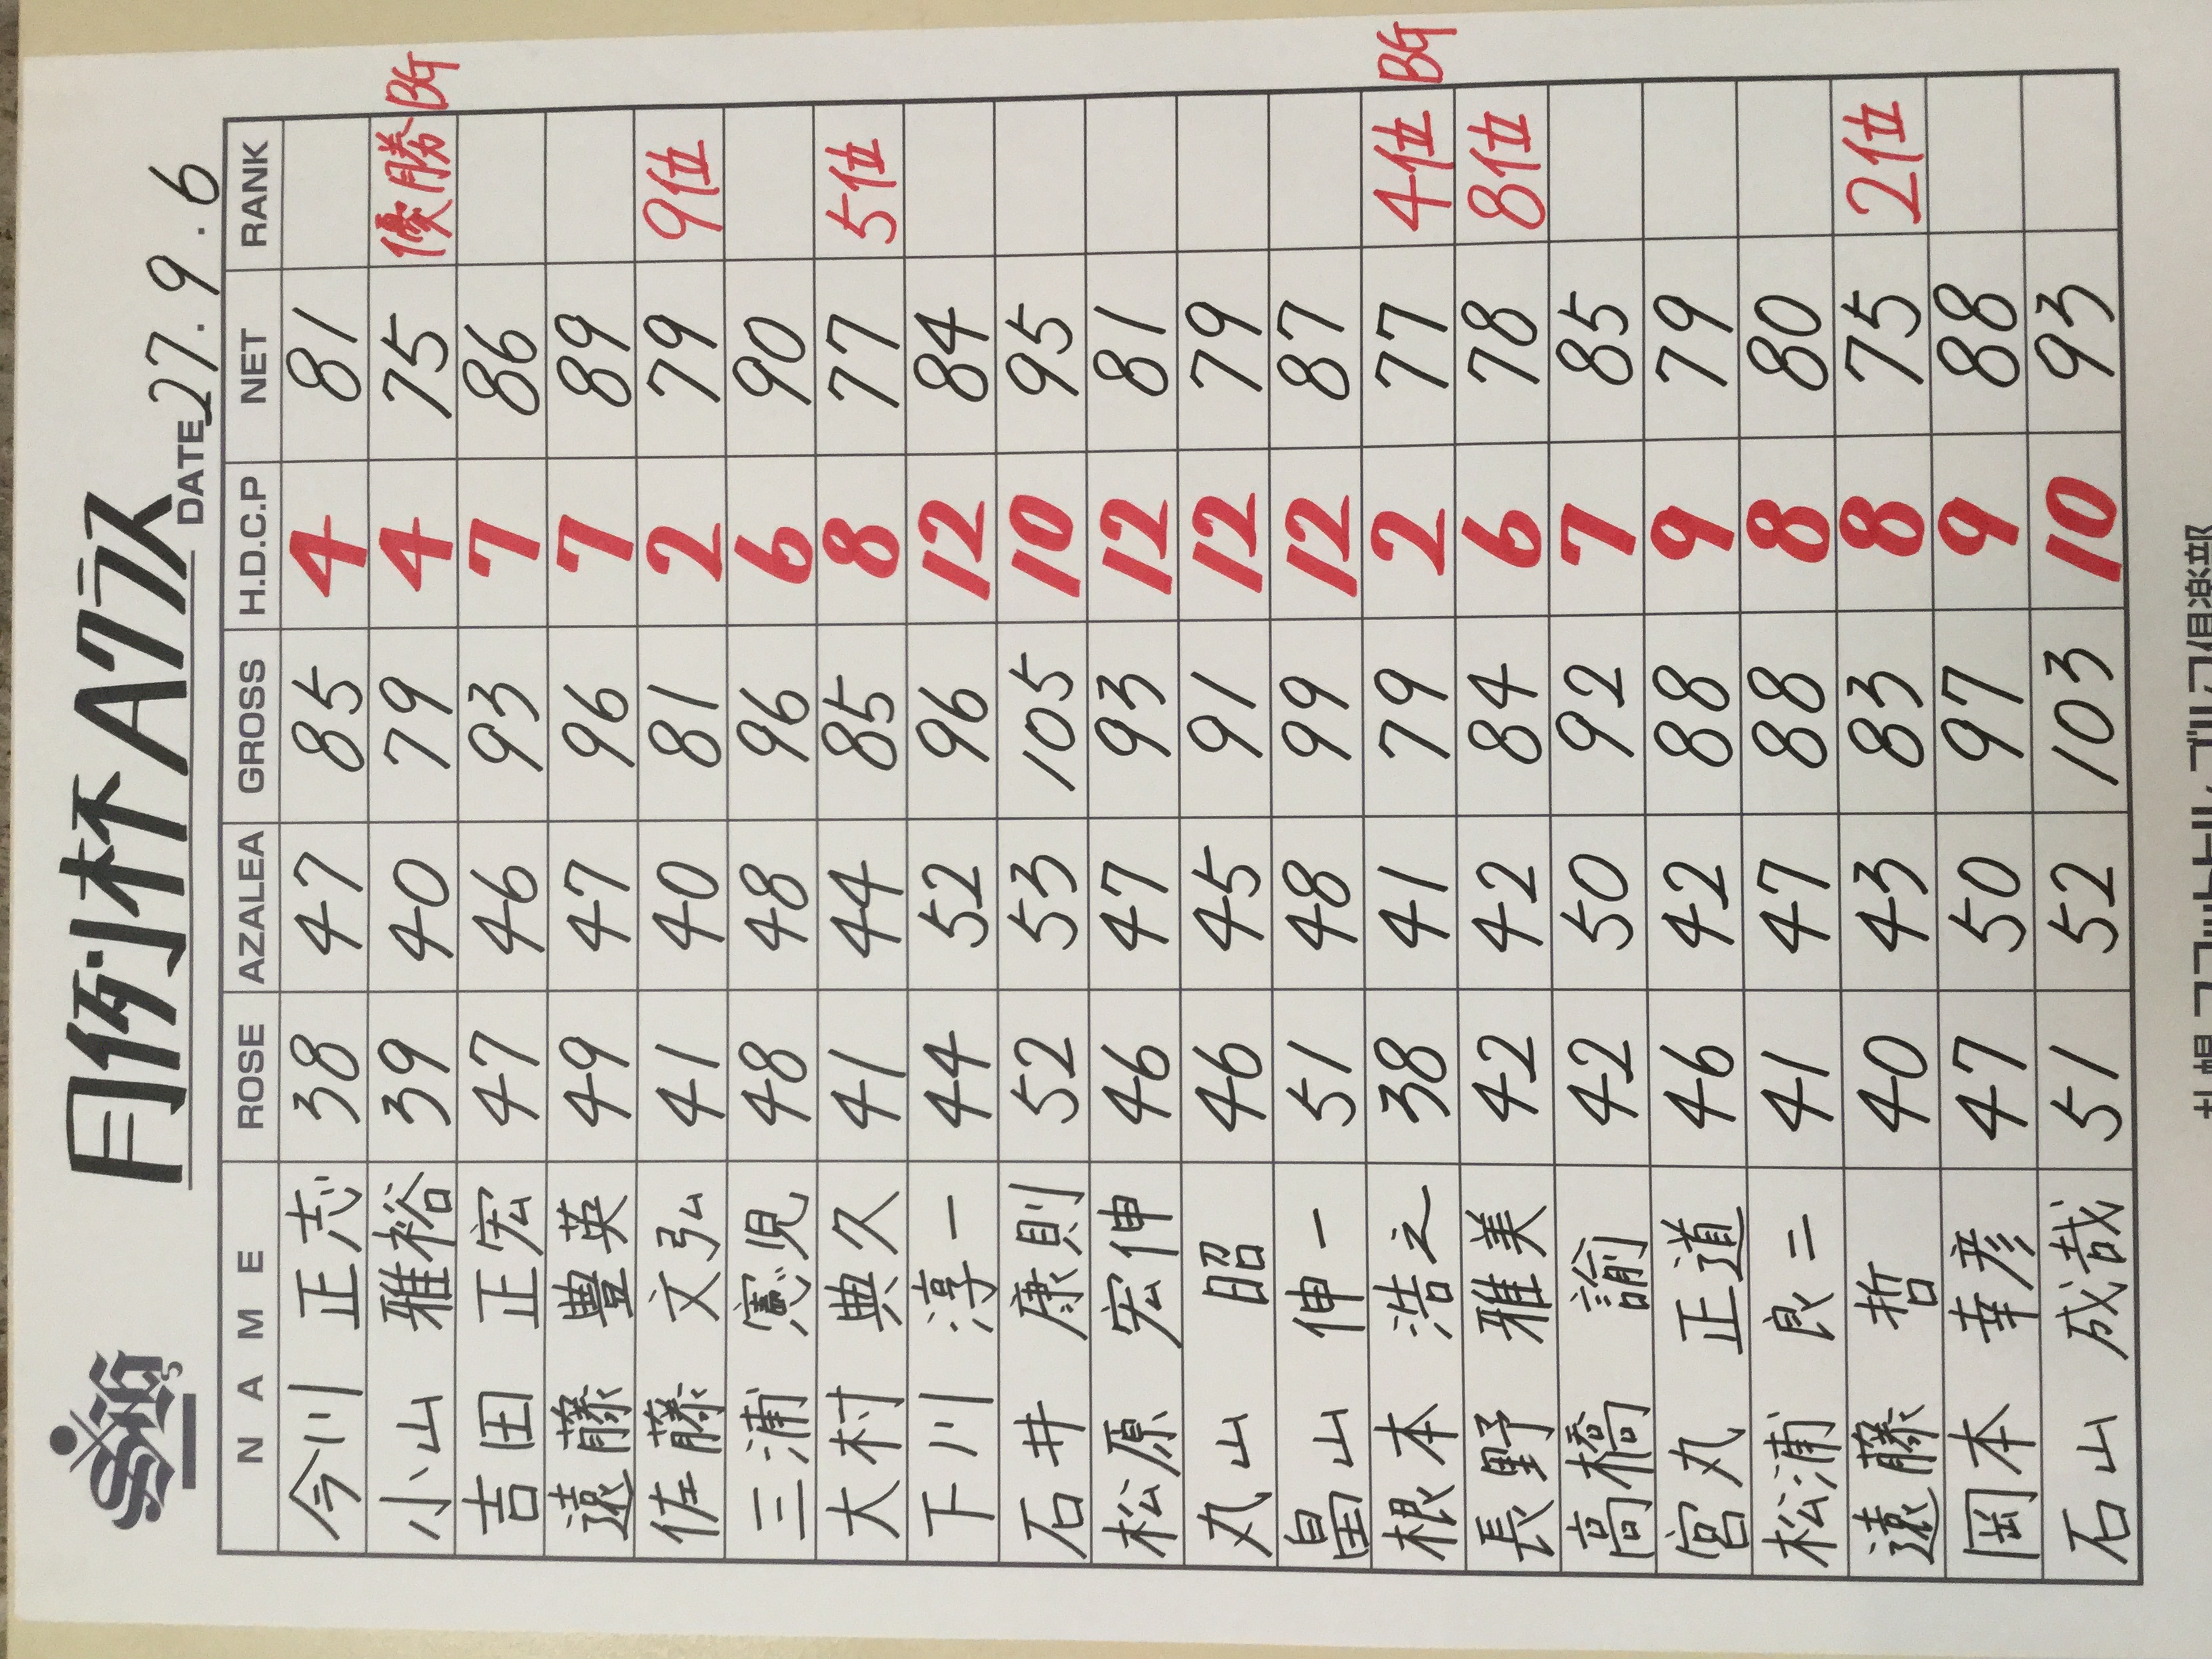 月例杯Aクラス
DATE 27.9.6
NAME ROSE AZALEA GROSS H.D.C.P NET RANK
今川 正志 38 47 85 4 81
小山 雅裕 39 40 79 4 75 優勝 BG
吉田 正宏 47 46 93 7 86
遠藤 豊英 49 47 96 7 89
佐藤 文弘 41 40 81 2 79 9位
三浦 憲児 48 48 96 6 90
大村 典久 41 44 85 8 77 5位
下川 淳一 44 52 96 12 84
石井 康則 52 53 105 10 95
松原 宏伸 46 47 93 12 81
丸山 昭 46 45 91 12 79
畠山 伸一 51 48 99 12 87
根本 浩之 38 41 79 2 77 4位 BG
長野 雅美 42 42 84 6 78 8位
高橋 諭 42 50 92 7 85
宮丸 正道 46 42 88 9 79
松浦 良二 41 47 88 8 80
遠藤 哲 40 43 83 8 75 2位
岡本 幸彦 47 50 97 9 88
石山 成哉 51 52 103 10 93